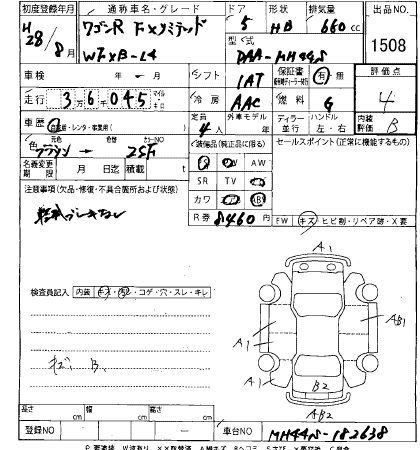 初度登録年月 通称車名・グレード ドア 形状 排気量 出品NO
H28/8月 ワゴンR FXリミテッド 5 HB 660cc 1508
WFXB-L4 型式 DAA-MH44S
車検 年 月 シフト IAT 保証書 有 無 評価点
走行 36,045 マイル キロ 冷房 AAC 燃料 G 4
車歴 自家用・レンタ・事業用( ) 定員 4人 外車モデル 年 ディーラー 並行 ハンドル 左・右 内装評価 B
色 元色 ブラウン → 色替 カラーNO ZSF 装備品(純正品に限る) セールスポイント(正常に機能するもの)
名義変更期限 月 日迄 積載 t PS PW AW
注意事項(欠品・修復・不具合箇所および状態) SR TV
カワ エア ABS
R券 8460円 FW キズ・ヒビ割・リペア跡・X要
A1
検査員記入 内装 キズ・汚レ・コゲ・穴・スレ・キレ
AB1
A1
キズ、B、
A1 A1
B2
AB2
長さ cm 幅 cm 高さ cm
登録NO 車台NO MH44S-182638